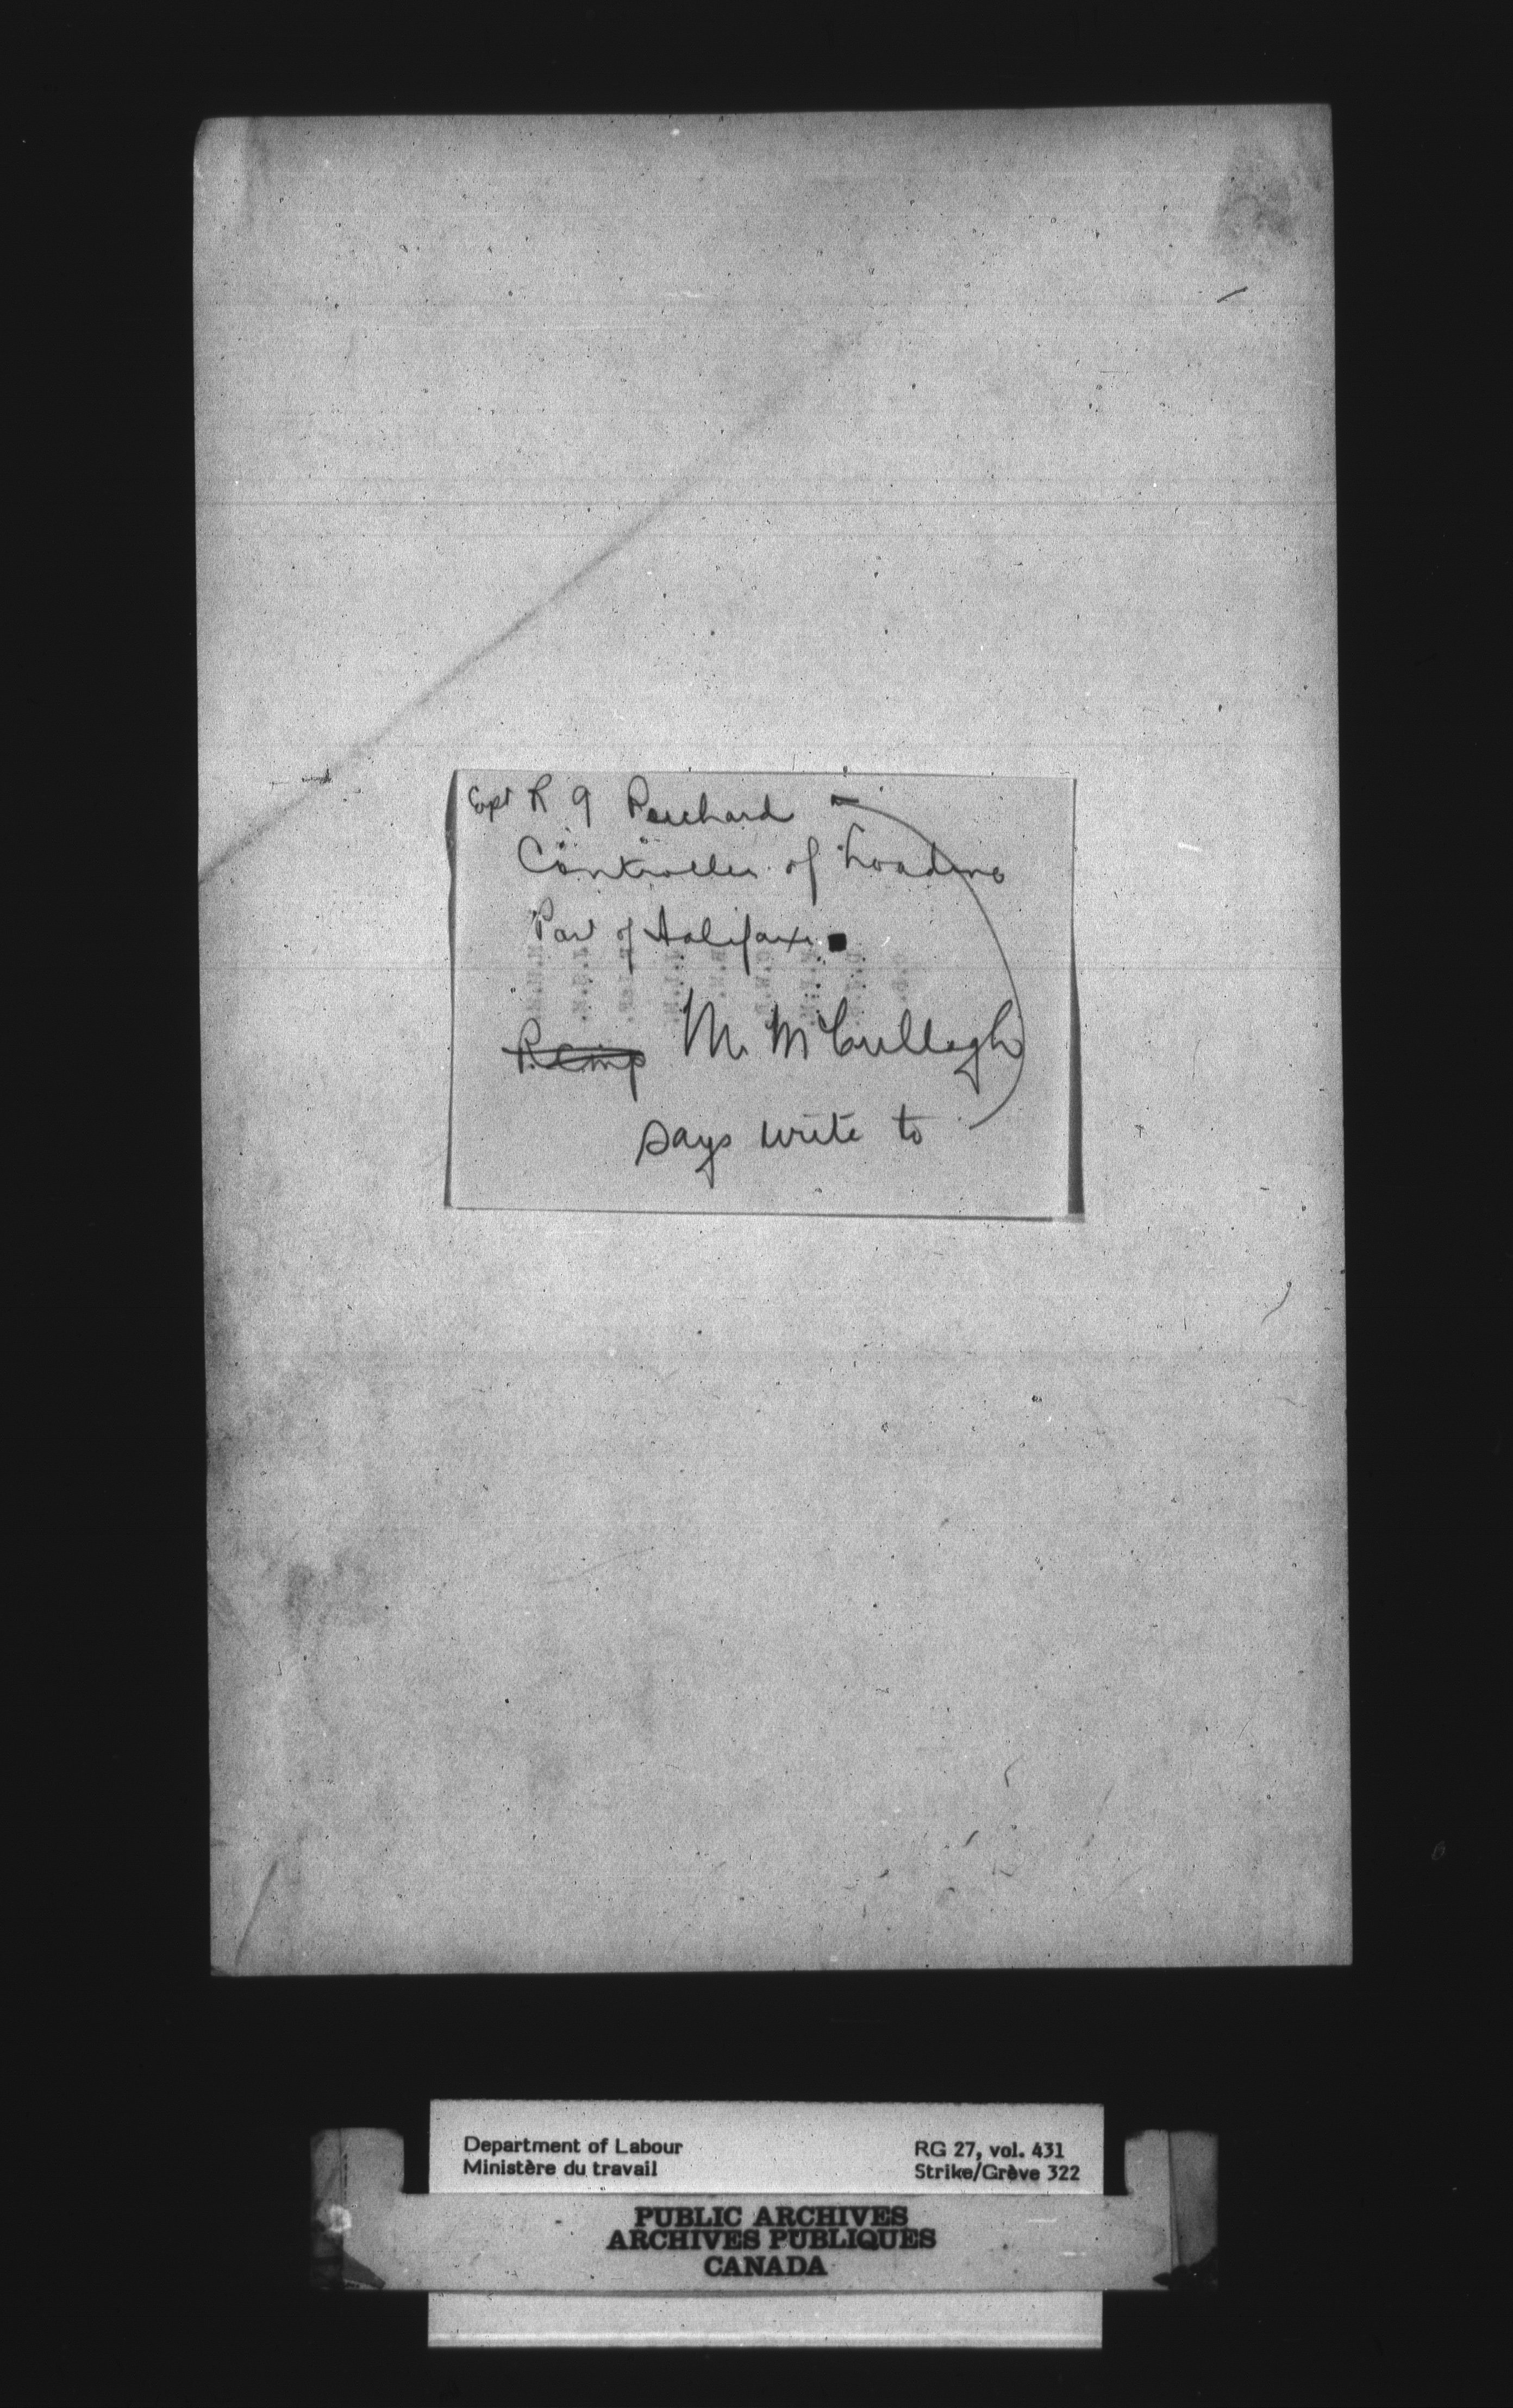 Capt R G Perchard
Controller of Loading
Port of Halifax.
Mr McCullagh
says write to
Department of Labour
Ministère du travail
RG 27, vol. 431
Strike/Grève 322
PUBLIC ARCHIVES
ARCHIVES PUBLIQUES
CANADA